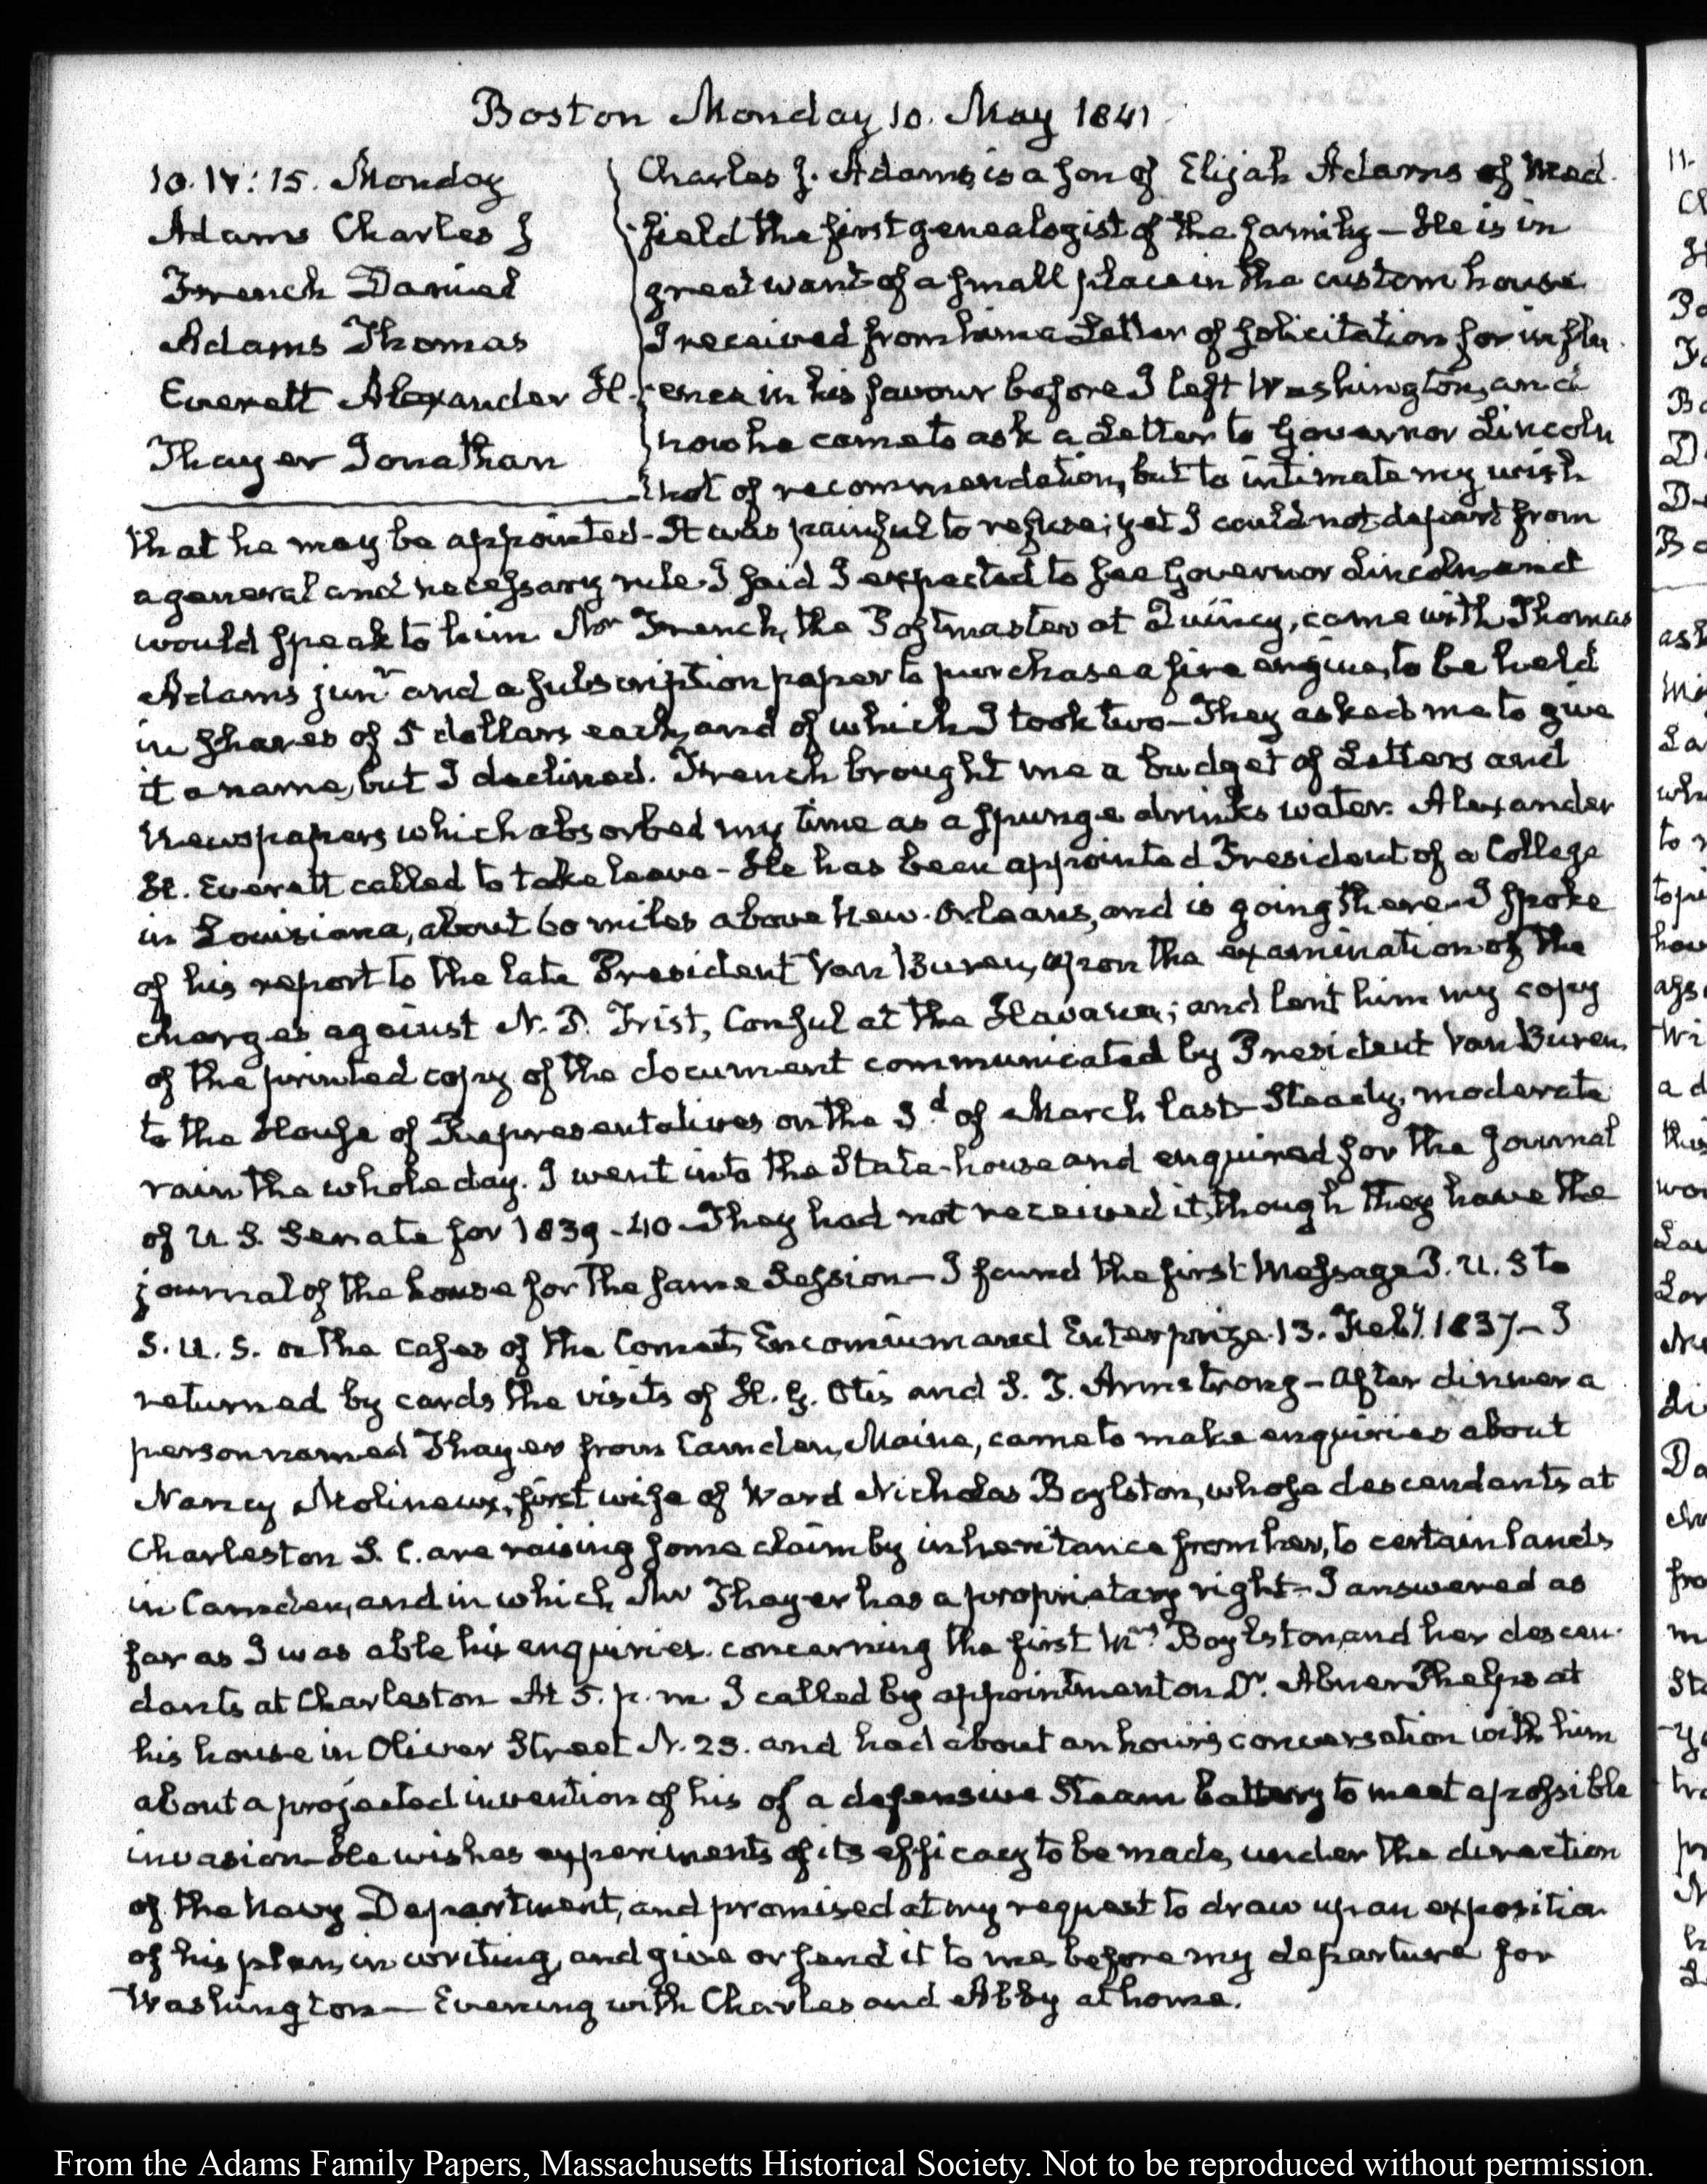 Boston Monday 10. May 1841
10. IV: 15. Monday
Adams Charles J
French Daniel
Adams Thomas
Everett Alexander H.
Thayer Jonathan
Charles J. Adams, is a son of Elijah Adams of Med-
field the first genealogist of the family – He is in
great want of a small place in the custom house
I received from him a Letter of solicitation for influ-
ence in his favour before I left Washington, and
now he came to ask a Letter to Governor Lincoln
not of recommendation, but to intimate my wish
that he may be appointed – It was painful to refuse; yet I could not depart from
a general and necessary rule. I said I expected to see Governor Lincoln and
would speak to him. Mr French, the Postmaster at Quincy, came with Thomas
Adams junr and a subscription paper to purchase a fire engine, to be held
in shares of 5 dollars each, and of which I took two – They asked me to give
it a name, but I declined. French brought me a budget of Letters and
Newspapers which absorbed my time as a spunge drinks water. Alexander
H. Everett called to take leave – He has been appointed President of a College
in Louisiana, about 60 miles above New-Orleans, and is going there – I spoke
of his report to the late President Van Buren, upon the examination of the
charges against N. P. Trist, Consul at the Havana; and lent him my copy
of the printed copy of the document communicated by President Van Buren
to the House of Representatives on the 3d of March last – Steady, moderate
rain the whole day. I went into the State-house and enquired for the Journal
of U. S. Senate for 1839-40 – They had not received it, though they have the
journal of the house for the same Session – I found the first Message P. U. S to
S. U. S. on the cases of the Comet, Encomium and Enterprize. 13. Feby 1837 – I
returned by cards the visits of H. G. Otis and S. T. Armstrong – After dinner a
person named Thayer from Camden, Maine, came to make enquiries about
Nancy Molineux, first wife of Ward Nicholas Boylston, whose descendants at
Charleston S. C. are raising some claim by inheritance from her, to certain lands
in Camden, and in which Mr Thayer has a proprietary right – I answered as
far as I was able his enquiries concerning the first Mrs Boylston, and her descen-
dants at Charleston – At 5. p. m. I called by appointment on Dr. Abner Phelps at
his house in Oliver Street N. 23. and had about an hour's conversation with him
about a projected invention of his of a defensive Steam battery to meet a possible
invasion – He wishes experiments of its efficacy to be made, under the direction
of the Navy Department, and promised at my request to draw up an exposition
of his plan, in writing, and give or send it to me before my departure for
Washington – Evening with Charles and Abby at home.
From the Adams Family Papers, Massachusetts Historical Society. Not to be reproduced without permission.